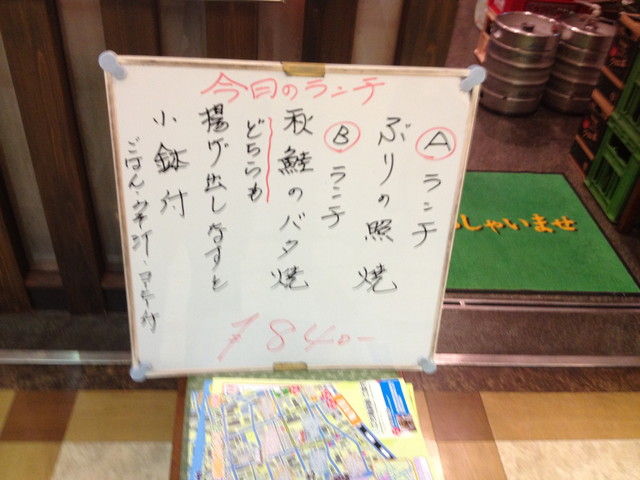 今日のランチ
Ⓐランチ
ぶりの照焼
Ⓑランチ
秋鮭のバタ焼
どちらも
揚げ出しなすと
小鉢付
ごはん、みそ汁、コーヒー付
¥840-
しゃいませ